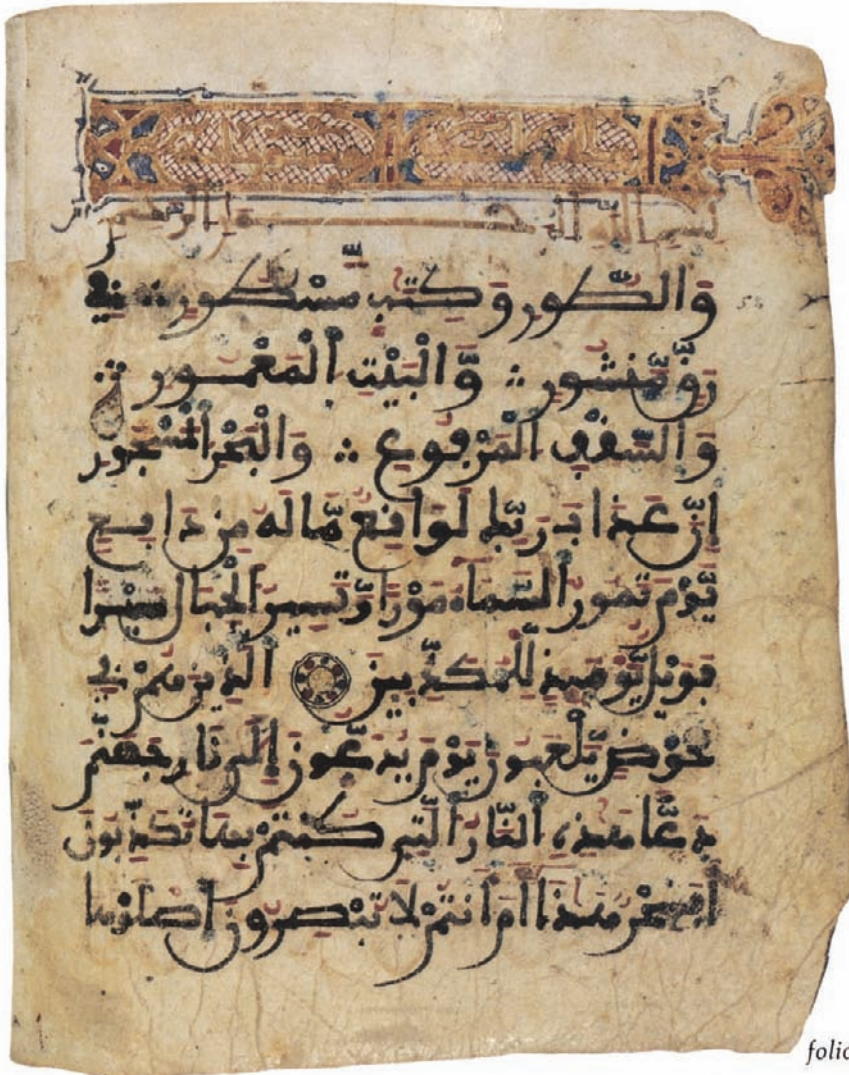 بسم الله الرحمن الرحيم
وَالطُّورِ وَكِتَبٍ مَّسْطُورٍ فِي
رَقٍّ مَّنشُورٍ وَّالْبَيْتِ الْمَعْمُورِ
وَالسَّقْفِ الْمَرْفُوعِ وَالْبَحْرِ الْمَسْجُورِ
إِنَّ عَذَابَ رَبِّكَ لَوَاقِعٌ مَّا لَهُ مِن دَافِعٍ
يَّوْمَ تَمُورُ السَّمَاءُ مَوْرًا وَّتَسِيرُ الْجِبَالُ سَيْرًا
فَوَيْلٌ يَّوْمَئِذٍ لِّلْمُكَذِّبِينَ الَّذِينَ هُمْ فِي
خَوْضٍ يَّلْعَبُونَ يَوْمَ يُدَعُّونَ إِلَى نَارِ جَهَنَّمَ
دَعًّا هَذِهِ النَّارُ الَّتِي كُنتُمْ بِهَا تُكَذِّبُونَ
أَفَسِحْرٌ هَذَا أَمْ أَنتُمْ لَا تُبْصِرُونَ اصْلَوْهَا
folio